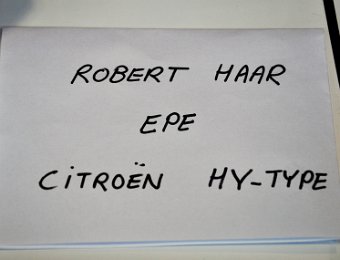 ROBERT HAAR
EPE
CiTROËN HY-TYPE